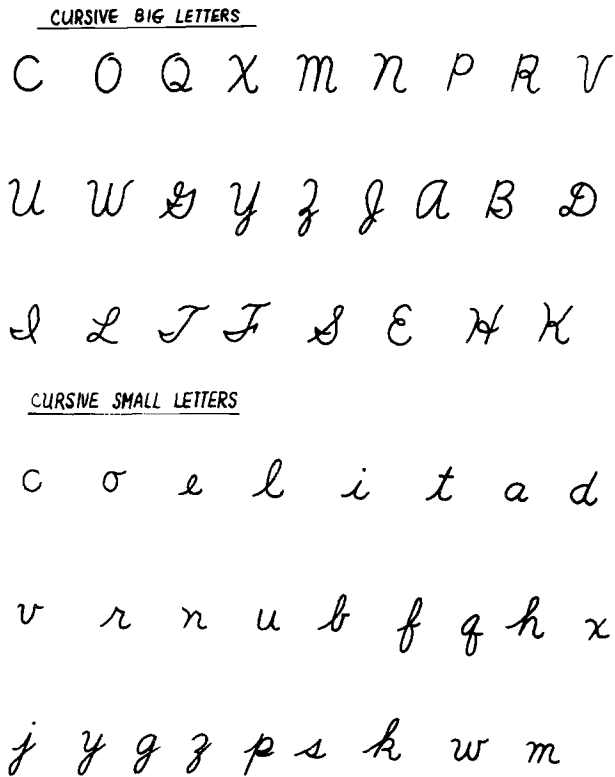 CURSIVE BIG LETTERS
C O Q X M N P R V
U W G Y Z J A B D
I L T F S E H K
CURSIVE SMALL LETTERS
c o e l i t a d
v r n u b f q h x
j y g z p s k w m